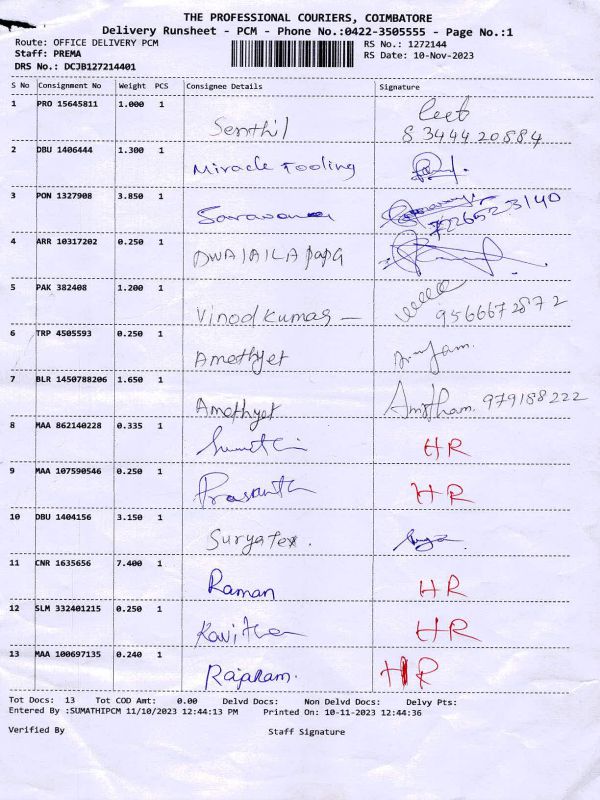 THE PROFESSIONAL COURIERS, COIMBATORE
Delivery Runsheet - PCM - Phone No.:0422-3505555 - Page No.:1
Route: OFFICE DELIVERY PCM RS No.: 1272144
Staff: PREMA RS Date: 10-Nov-2023
DRS No.: DCJB127214401
S No Consignment No Weight PCS Consignee Details Signature
1 PRO 15645811 1.000 1
Senthil 8344420884
2 DBU 1406444 1.300 1 Miracle Tooling
3 PON 1327908 3.850 1 Saravana 7226523140
4 ARR 10317202 0.250 1
5 PAK 382408 1.200 1
Vinodkumar — 9566672872
6 TRP 4505593 0.250 1
Amethyst
7 BLR 1450788206 1.650 1
Amethyst 979188222
8 MAA 862140228 0.335 1 HR
9 MAA 107590546 0.250 1 Prasanth HR
10 DBU 1404156 3.150 1 Suryatex.
11 CNR 1635656 7.400 1 Raman HR
12 SLM 332401215 0.250 1 Kavitha HR
13 MAA 100697135 0.240 1 Rajaram. HR
Tot Docs: 13 Tot COD Amt: 0.00 Delvd Docs: Non Delvd Docs: Delvy Pts:
Entered By :SUMATHIPCM 11/10/2023 12:44:13 PM Printed On: 10-11-2023 12:44:36
Verified By Staff Signature